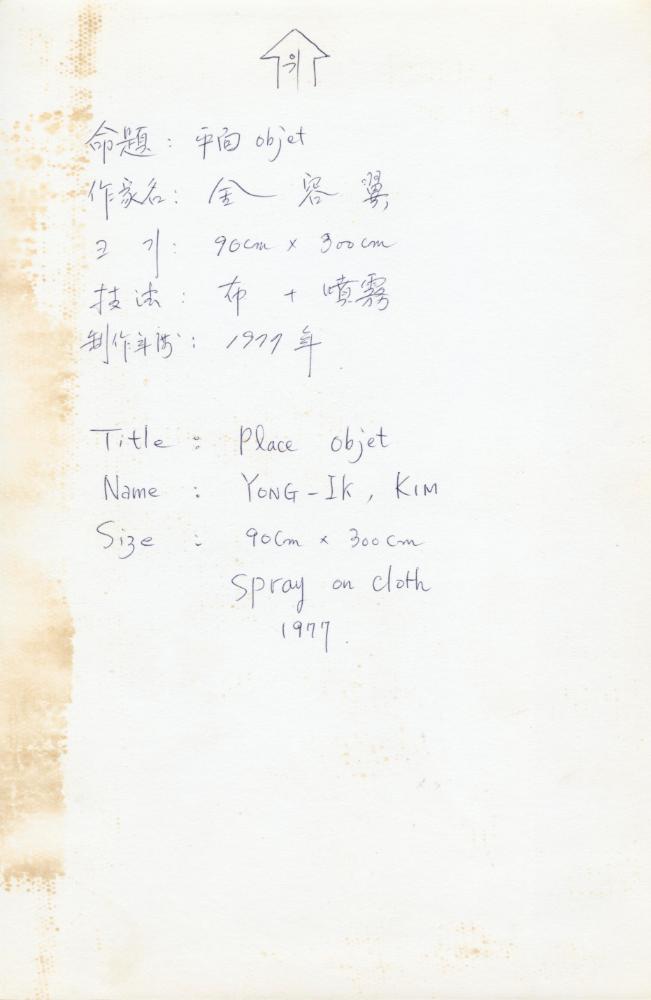 위
命題 : 平面 objet
作家名 : 金 容 翼
크 기 : 90cm x 300cm
技 法 : 布 + 噴霧
制作年度 : 1977 年.
Title : Place objet
Name : YONG-IK, KIM
Size : 90Cm x 300cm
Spray on cloth
1977.